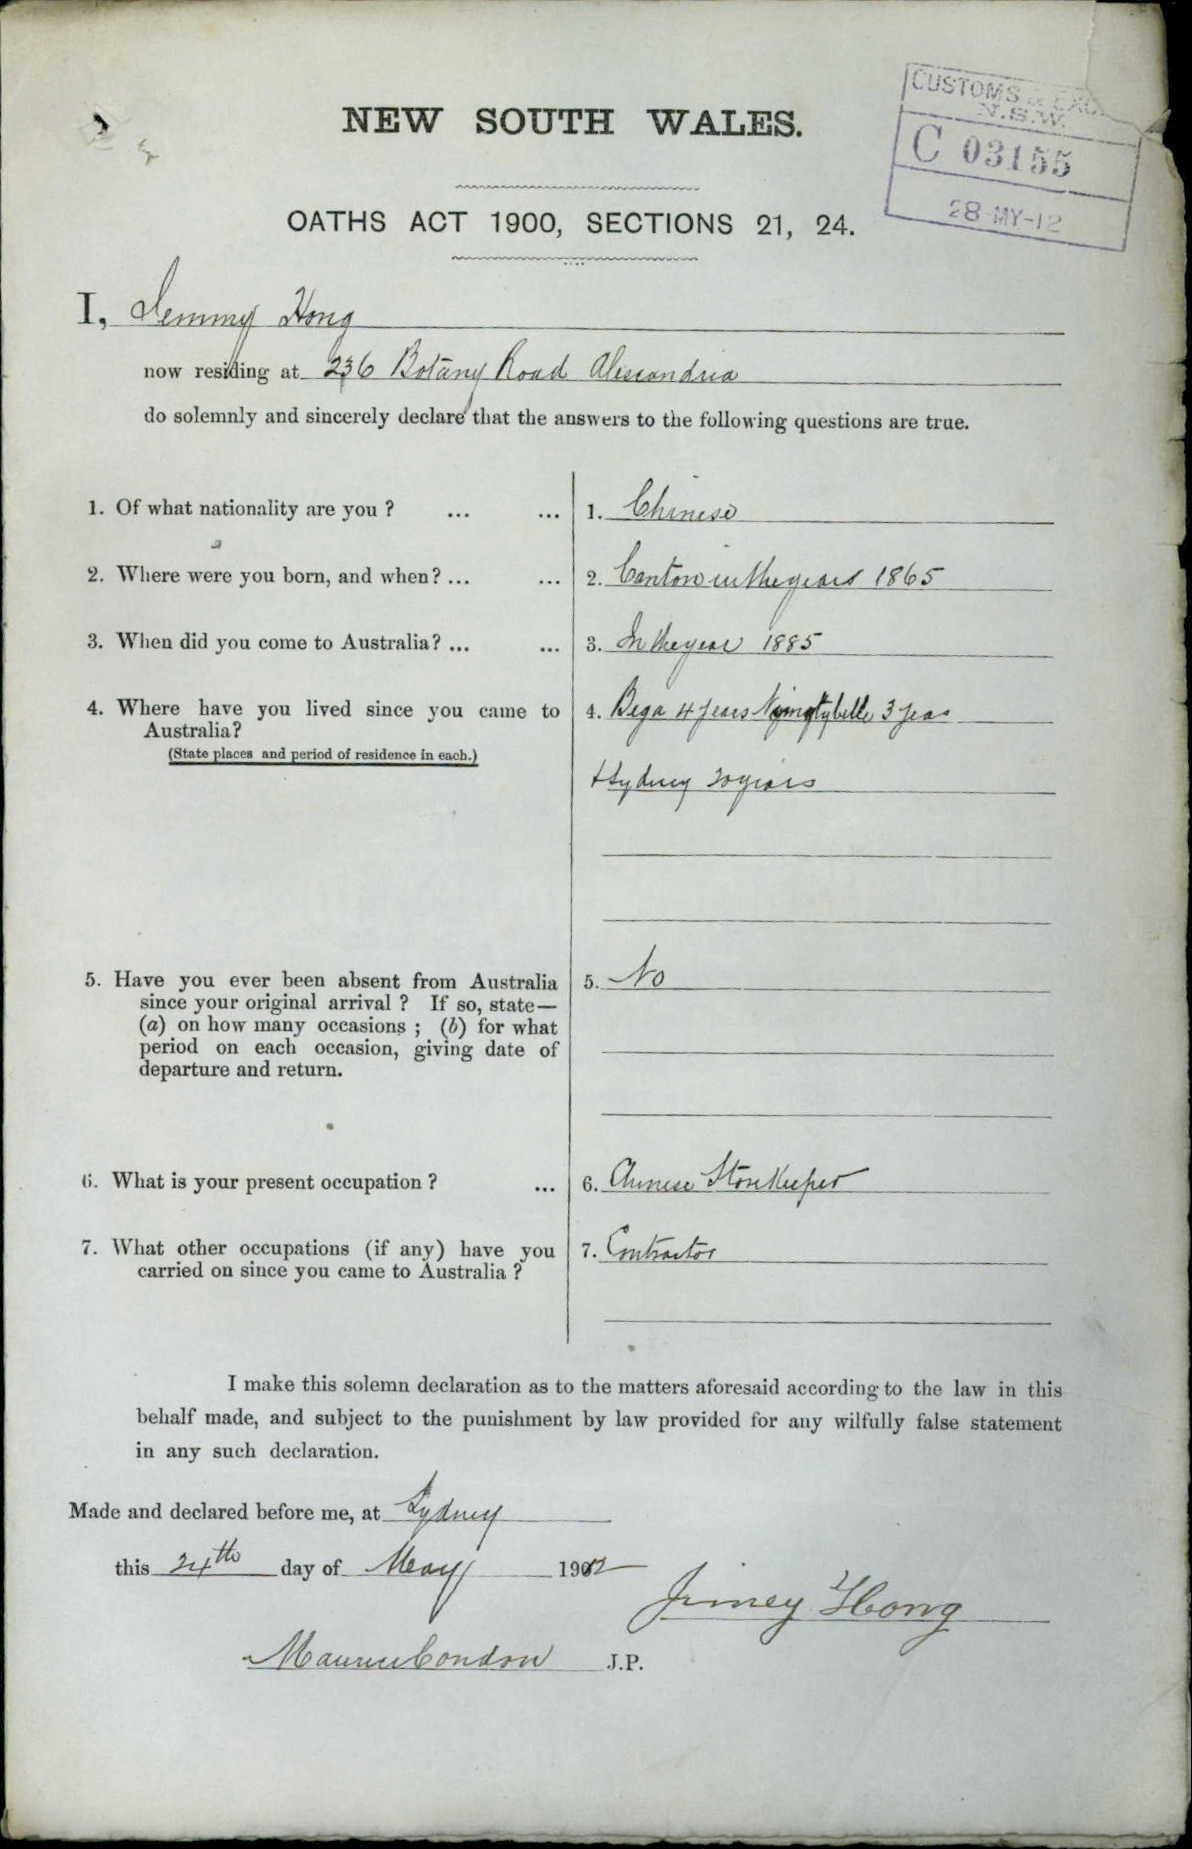 CUSTOMS & EXC
N.S.W.
C 03155
28-MY-12
NEW SOUTH WALES.
OATHS ACT 1900, SECTIONS 21, 24.
I, Jemmy Hong
now residing at 236 Botany Road Alexandria
do solemnly and sincerely declare that the answers to the following questions are true.
1. Of what nationality are you ? ... ... 1. Chinese
2. Where were you born, and when? ... ... 2. Canton in the years 1865
3. When did you come to Australia? ... ... 3. In the year 1885
4. Where have you lived since you came to 4. Bega 4 years 3 years
Australia?
(State places and period of residence in each.)
+ Sydney 20 years
5. Have you ever been absent from Australia 5. No
since your original arrival ? If so, state—
(a) on how many occasions ; (b) for what
period on each occasion, giving date of
departure and return.
6. What is your present occupation ? ... 6. Chinese Storekeeper
7. What other occupations (if any) have you 7. Contractor
carried on since you came to Australia ?
I make this solemn declaration as to the matters aforesaid according to the law in this
behalf made, and subject to the punishment by law provided for any wilfully false statement
in any such declaration.
Made and declared before me, at Sydney
this 24th day of May 1912
Jimey Hong
Maurice Condon J.P.